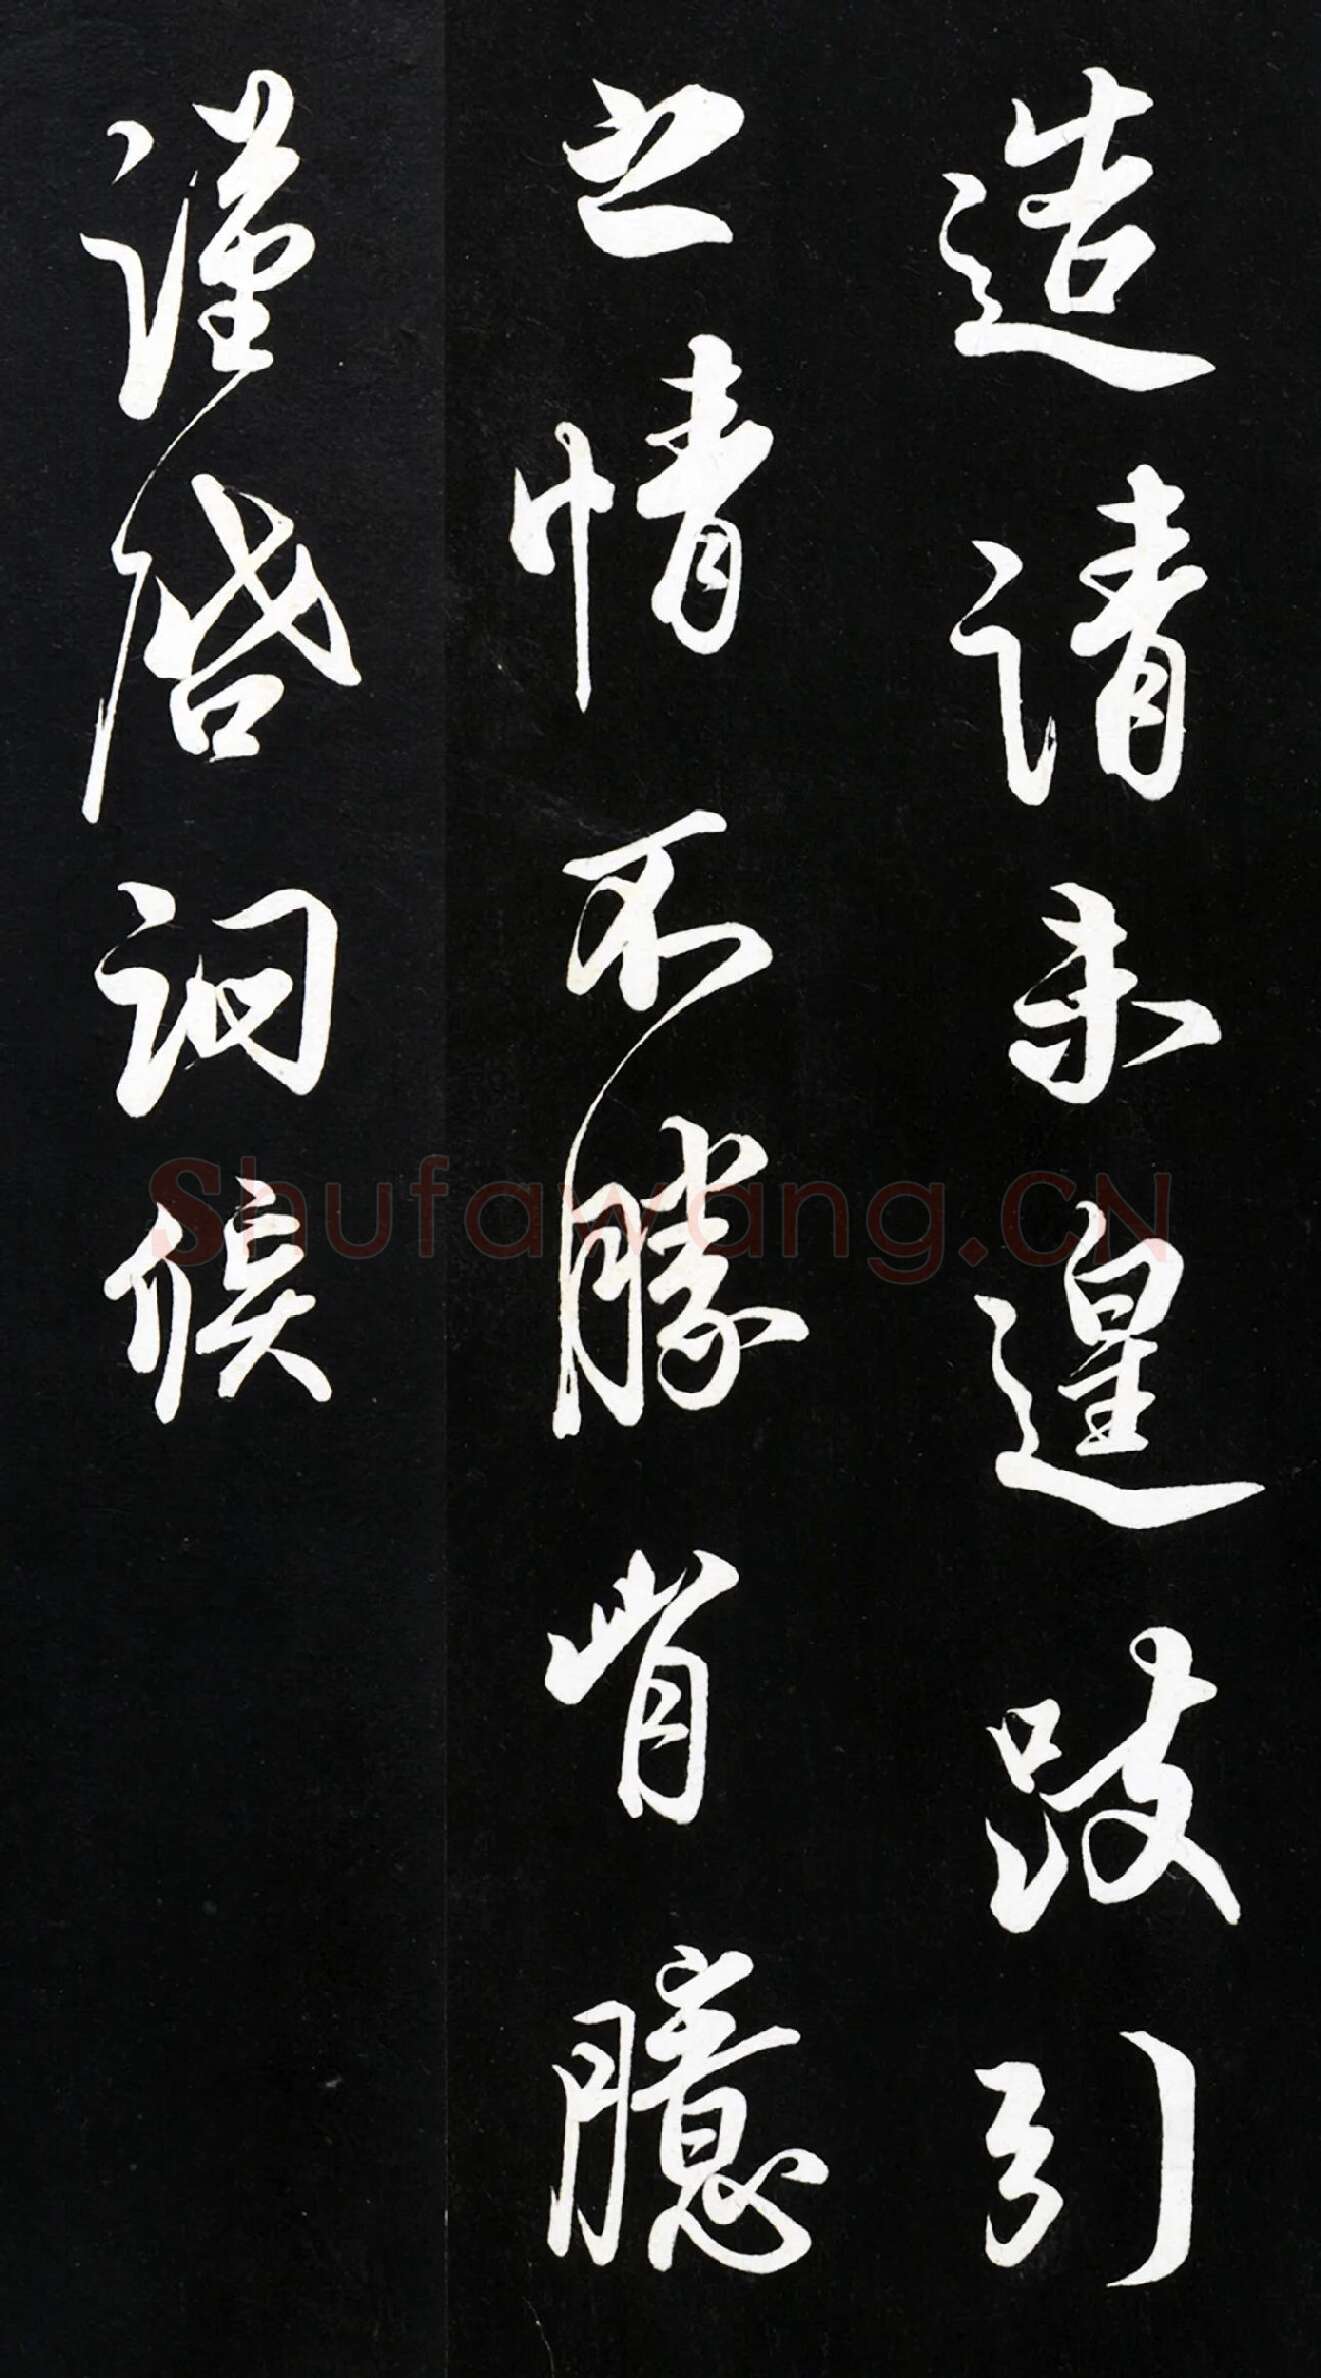 造請未遑跂引
之情不勝胷臆
謹啓詞候
Shufawang.CN